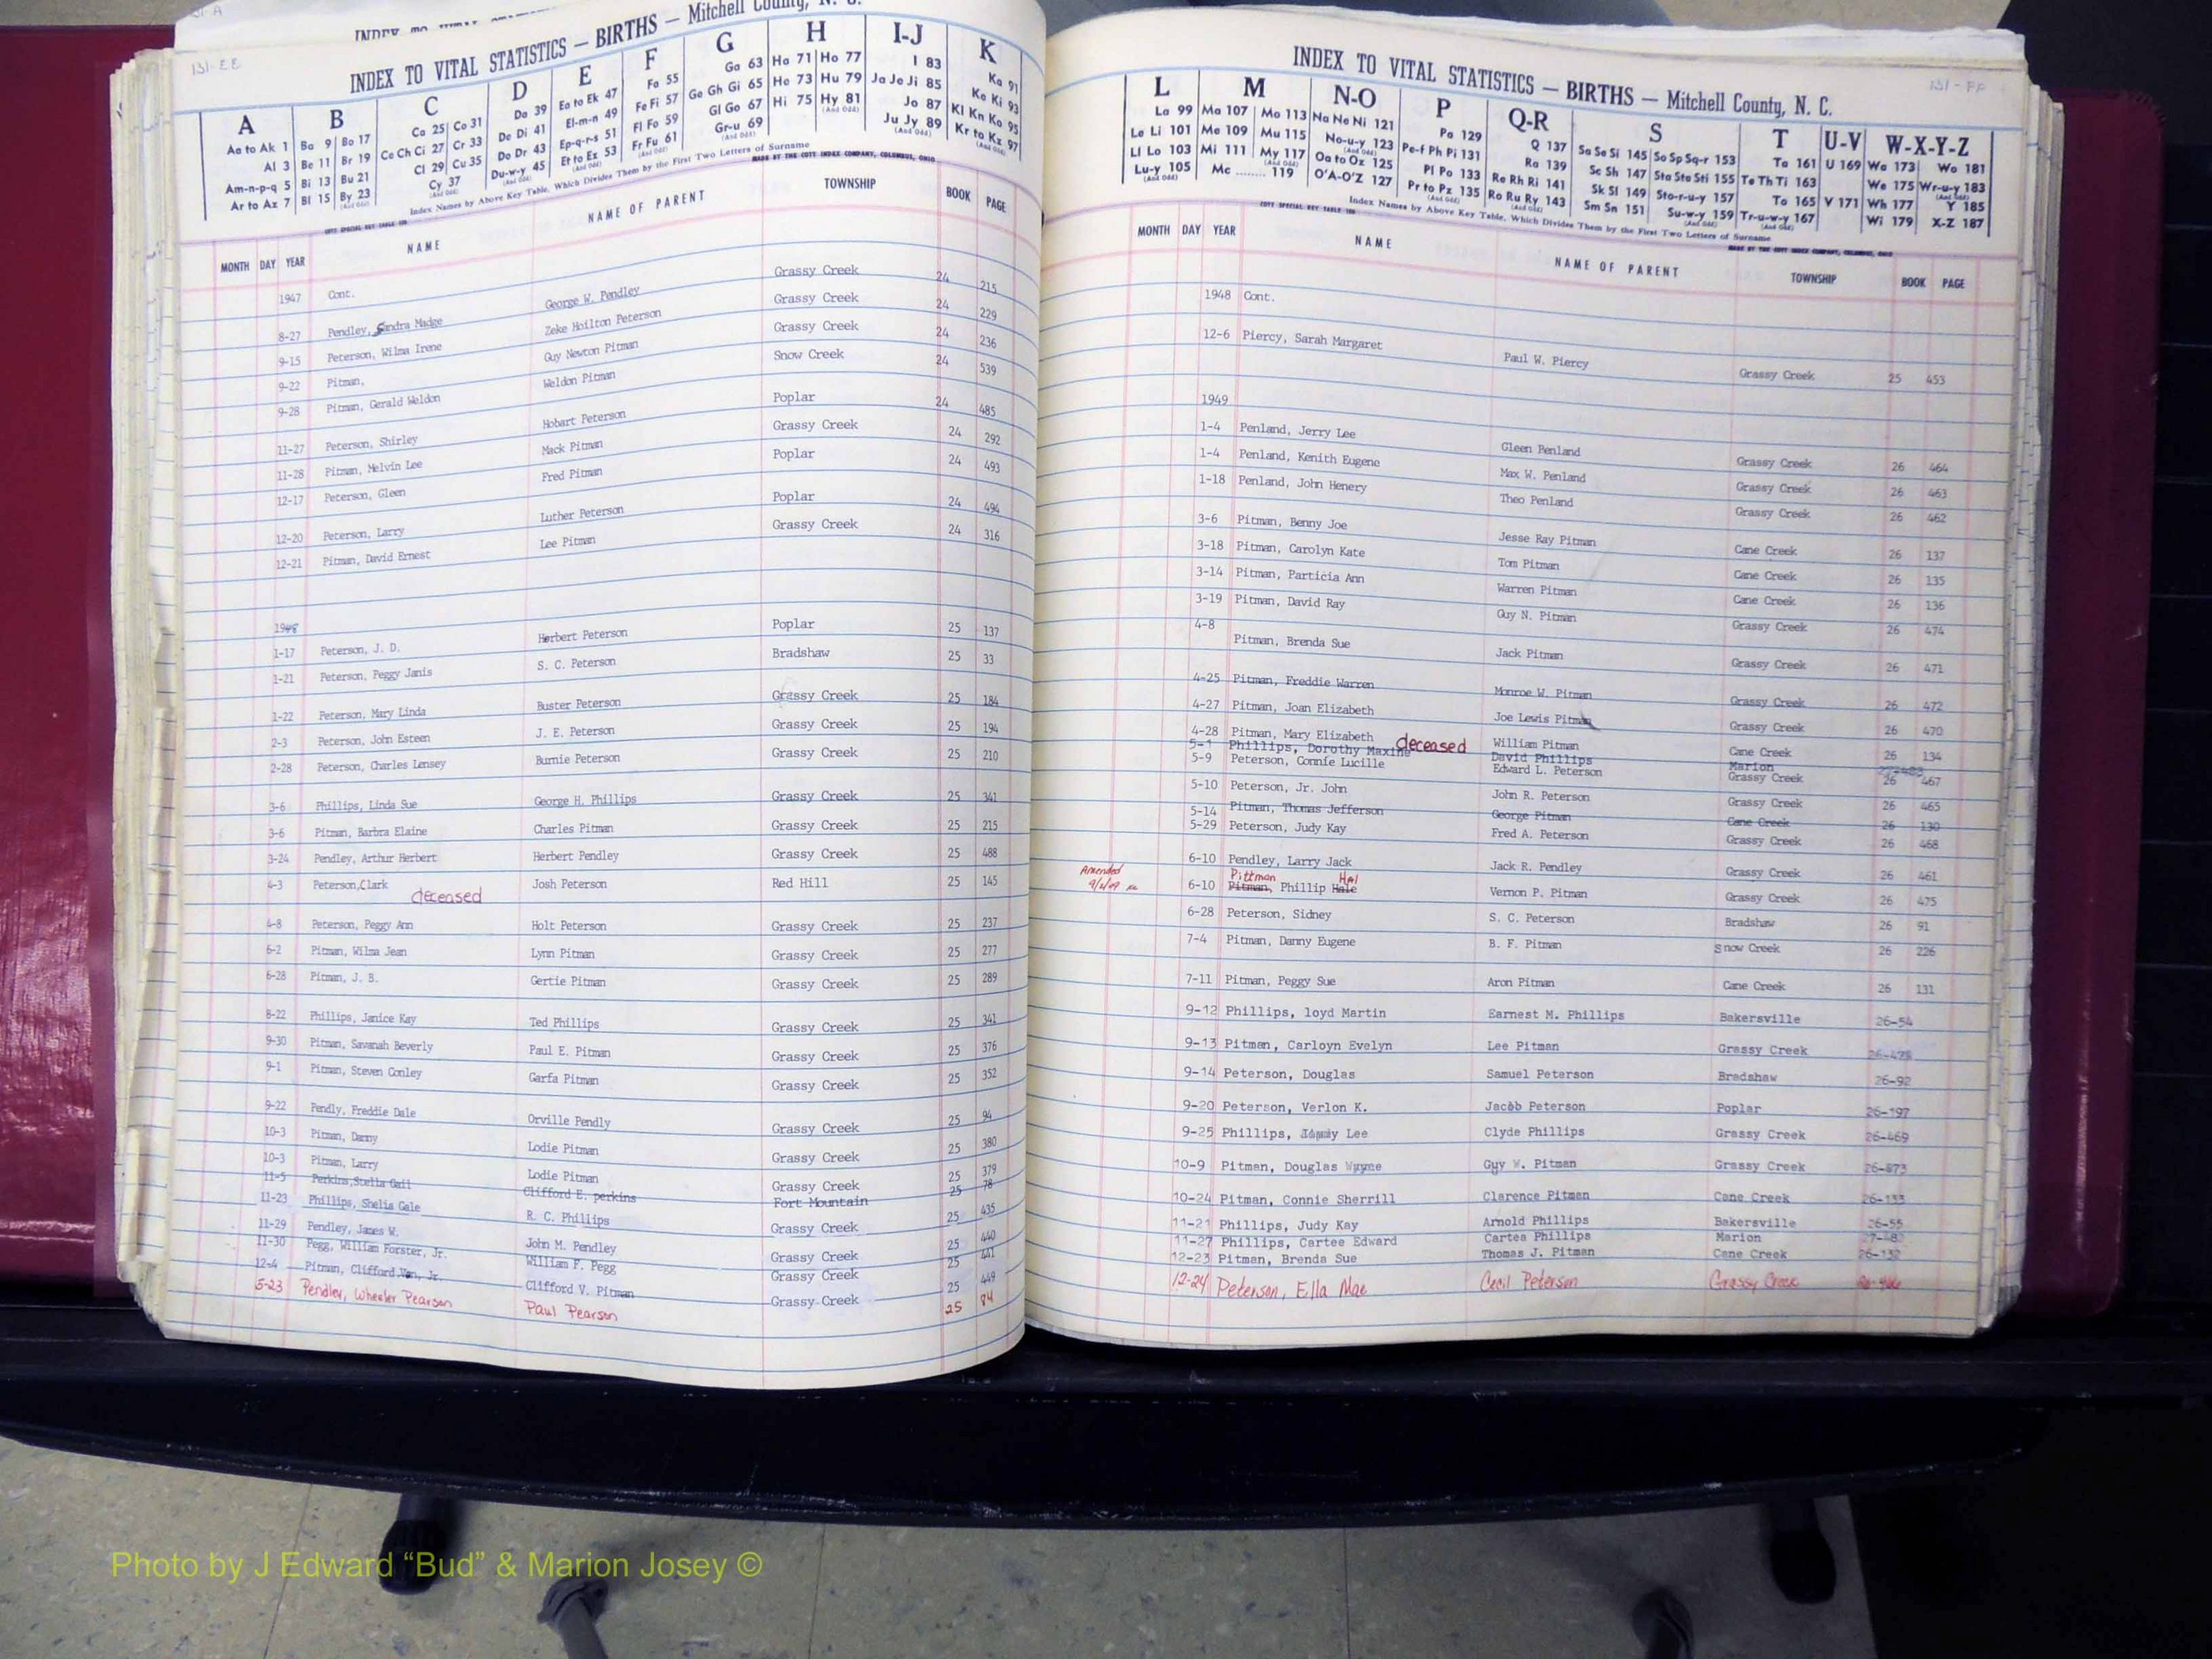 131-EE
INDEX TO VITAL STATISTICS — BIRTHS — Mitchell County, N. C.
A B C D E F G H I-J K
Aa to Ak 1 Ba 9 Bo 17 Ca 25 Co 31 Da 39 Ea to Ek 47 Fa 55 Ga 63 Ha 71 Ho 77 I 83 Ka 91
Al 3 Be 11 Br 19 Ce Ch Ci 27 Cr 33 De Di 41 El-m-n 49 Fe Fi 57 Ge Gh Gi 65 He 73 Hu 79 Ja Je Ji 85 Ke Ki 93
Am-n-p-q 5 Bi 13 Bu 21 Cl 29 Cu 35 Do Dr 43 Ep-q-r-s 51 Fl Fo 59 Gl Go 67 Hi 75 Hy 81 Jo 87 Kl Kn Ko 95
Ar to Az 7 Bl 15 By 23 Cy 37 Du-w-y 45 Et to Ez 53 Fr Fu 61 Gr-u 69 Ju Jy 89 Kr to Kz 97
Index Names by Above Key Table, Which Divides Them by the First Two Letters of Surname
MADE BY THE COTT INDEX COMPANY, COLUMBUS, OHIO
MONTH DAY YEAR NAME NAME OF PARENT TOWNSHIP BOOK PAGE
1947 Cont.
8-27 Pendley, Sandra Madge George W. Pendley Grassy Creek 24 215
9-15 Peterson, Wilma Irene Zeke Hoilton Peterson Grassy Creek 24 229
9-22 Pitman, Guy Newton Pitman Grassy Creek 24 236
9-28 Pitman, Gerald Weldon Weldon Pitman Snow Creek 24 539
11-27 Peterson, Shirley Hobart Peterson Poplar 24 485
11-28 Pitman, Melvin Lee Mack Pitman Grassy Creek 24 292
12-17 Peterson, Gleen Fred Pitman Poplar 24 493
12-20 Peterson, Larry Luther Peterson Poplar 24 494
12-21 Pitman, David Ernest Lee Pitman Grassy Creek 24 316
1948
1-17 Peterson, J. D. Herbert Peterson Poplar 25 137
1-21 Peterson, Peggy Janis S. C. Peterson Bradshaw 25 33
1-22 Peterson, Mary Linda Buster Peterson Grassy Creek 25 184
2-3 Peterson, John Esteen J. E. Peterson Grassy Creek 25 194
2-28 Peterson, Charles Lensey Burnie Peterson Grassy Creek 25 210
3-6 Phillips, Linda Sue George H. Phillips Grassy Creek 25 341
3-6 Pitman, Barbra Elaine Charles Pitman Grassy Creek 25 215
3-24 Pendley, Arthur Herbert Herbert Pendley Grassy Creek 25 488
4-3 Peterson,Clark Josh Peterson Red Hill 25 145
deceased
4-8 Peterson, Peggy Ann Holt Peterson Grassy Creek 25 237
6-2 Pitman, Wilma Jean Lynn Pitman Grassy Creek 25 277
6-28 Pitman, J. B. Gertie Pitman Grassy Creek 25 289
8-22 Phillips, Janice Kay Ted Phillips Grassy Creek 25 341
9-30 Pitman, Savanah Beverly Paul E. Pitman Grassy Creek 25 376
9-1 Pitman, Steven Conley Garfa Pitman Grassy Creek 25 352
9-22 Pendly, Freddie Dale Orville Pendly Grassy Creek 25 94
10-3 Pitman, Danny Lodie Pitman Grassy Creek 25 380
10-3 Pitman, Larry Lodie Pitman Grassy Creek 25 379
11-5 Perkins,Stella Gail Clifford E. perkins Fort Mountain 25 78
11-23 Phillips, Shelia Gale R. C. Phillips Grassy Creek 25 435
11-29 Pendley, James W. John M. Pendley Grassy Creek 25 440
11-30 Pegg, William Forster, Jr. William F. Pegg Grassy Creek 25 441
12-4 Pitman, Clifford Van, Jr. Clifford V. Pitman Grassy Creek 25 449
5-23 Pendley, Wheeler Pearson Paul Pearson 25 84
131-FF
INDEX TO VITAL STATISTICS — BIRTHS — Mitchell County, N. C.
L M N-O P Q-R S T U-V W-X-Y-Z
La 99 Ma 107 Mo 113 Na Ne Ni 121 Pa 129 Q 137 Sa Se Si 145 So Sp Sq-r 153 Ta 161 U 169 Wa 173 Wo 181
Le Li 101 Me 109 Mu 115 No-u-y 123 Pe-f Ph Pi 131 Ra 139 Sc Sh 147 Sta Ste Sti 155 Te Th Ti 163 We 175 Wr-u-y 183
Ll Lo 103 Mi 111 My 117 Oa to Oz 125 Pl Po 133 Re Rh Ri 141 Sk Sl 149 Sto-r-u-y 157 To 165 V 171 Wh 177 Y 185
Lu-y 105 Mc ........ 119 O'A-O'Z 127 Pr to Pz 135 Ro Ru Ry 143 Sm Sn 151 Su-w-y 159 Tr-u-w-y 167 Wi 179 X-Z 187
Index Names by Above Key Table, Which Divides Them by the First Two Letters of Surname
MADE BY THE COTT INDEX COMPANY, COLUMBUS, OHIO
MONTH DAY YEAR NAME NAME OF PARENT TOWNSHIP BOOK PAGE
1948 Cont.
12-6 Piercy, Sarah Margaret Paul W. Piercy Grassy Creek 25 453
1949
1-4 Penland, Jerry Lee Gleen Penland Grassy Creek 26 464
1-4 Penland, Kenith Eugene Max W. Penland Grassy Creek 26 463
1-18 Penland, John Henery Theo Penland Grassy Creek 26 462
3-6 Pitman, Benny Joe Jesse Ray Pitman Cane Creek 26 137
3-18 Pitman, Carolyn Kate Tom Pitman Cane Creek 26 135
3-14 Pitman, Particia Ann Warren Pitman Cane Creek 26 136
3-19 Pitman, David Ray Guy N. Pitman Grassy Creek 26 474
4-8 Pitman, Brenda Sue Jack Pitman Grassy Creek 26 471
4-25 Pitman, Freddie Warren Monroe W. Pitman Grassy Creek 26 472
4-27 Pitman, Joan Elizabeth Joe Lewis Pitman Grassy Creek 26 470
4-28 Pitman, Mary Elizabeth William Pitman Cane Creek 26 134
5-1 Phillips, Dorothy Maxine deceased David Phillips Marion
5-9 Peterson, Connie Lucille Edward L. Peterson Grassy Creek 26 467
5-10 Peterson, Jr. John John R. Peterson Grassy Creek 26 465
5-14 Pitman, Thomas Jefferson George Pitman Cane Creek 26 130
5-29 Peterson, Judy Kay Fred A. Peterson Grassy Creek 26 468
6-10 Pendley, Larry Jack Jack R. Pendley Grassy Creek 26 461
Amended Pittman Hal
6-10 Pitman, Phillip Hale Vernon P. Pitman Grassy Creek 26 475
6-28 Peterson, Sidney S. C. Peterson Bradshaw 26 91
7-4 Pitman, Danny Eugene B. F. Pitman Snow Creek 26 226
7-11 Pitman, Peggy Sue Aron Pitman Cane Creek 26 131
9-12 Phillips, loyd Martin Earnest M. Phillips Bakersville 26-54
9-13 Pitman, Carloyn Evelyn Lee Pitman Grassy Creek
9-14 Peterson, Douglas Samuel Peterson Bradshaw 26-92
9-20 Peterson, Verlon K. Jacob Peterson Poplar 26-197
9-25 Phillips, Lee Clyde Phillips Grassy Creek 26-469
10-9 Pitman, Douglas Wayne Guy W. Pitman Grassy Creek
10-24 Pitman, Connie Sherrill Clarence Pitman Cane Creek 26-133
11-21 Phillips, Judy Kay Arnold Phillips Bakersville 26-55
11-27 Phillips, Cartee Edward Cartea Phillips Marion
12-23 Pitman, Brenda Sue Thomas J. Pitman Cane Creek 26-132
12-24 Peterson, Ella Mae Cecil Peterson Grassy Creek
Photo by J Edward “Bud” & Marion Josey ©